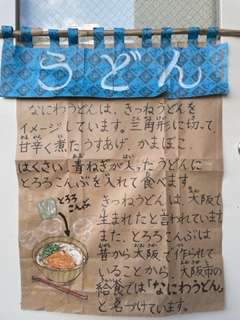 うどん
なにわうどんは、きつねうどんを
イメージしています。三角形に切って
甘辛く煮たうすあげ、かまぼこ、
はくさい、青ねぎが入ったうどんに
とろろこんぶを入れて食べます。
とろろ
こんぶ
きつねうどんは、大阪で
生まれたと言われています。
また、とろろこんぶは
昔から大阪で作られて
いることから、大阪市の
給食では「なにわうどん」
と名づけています。